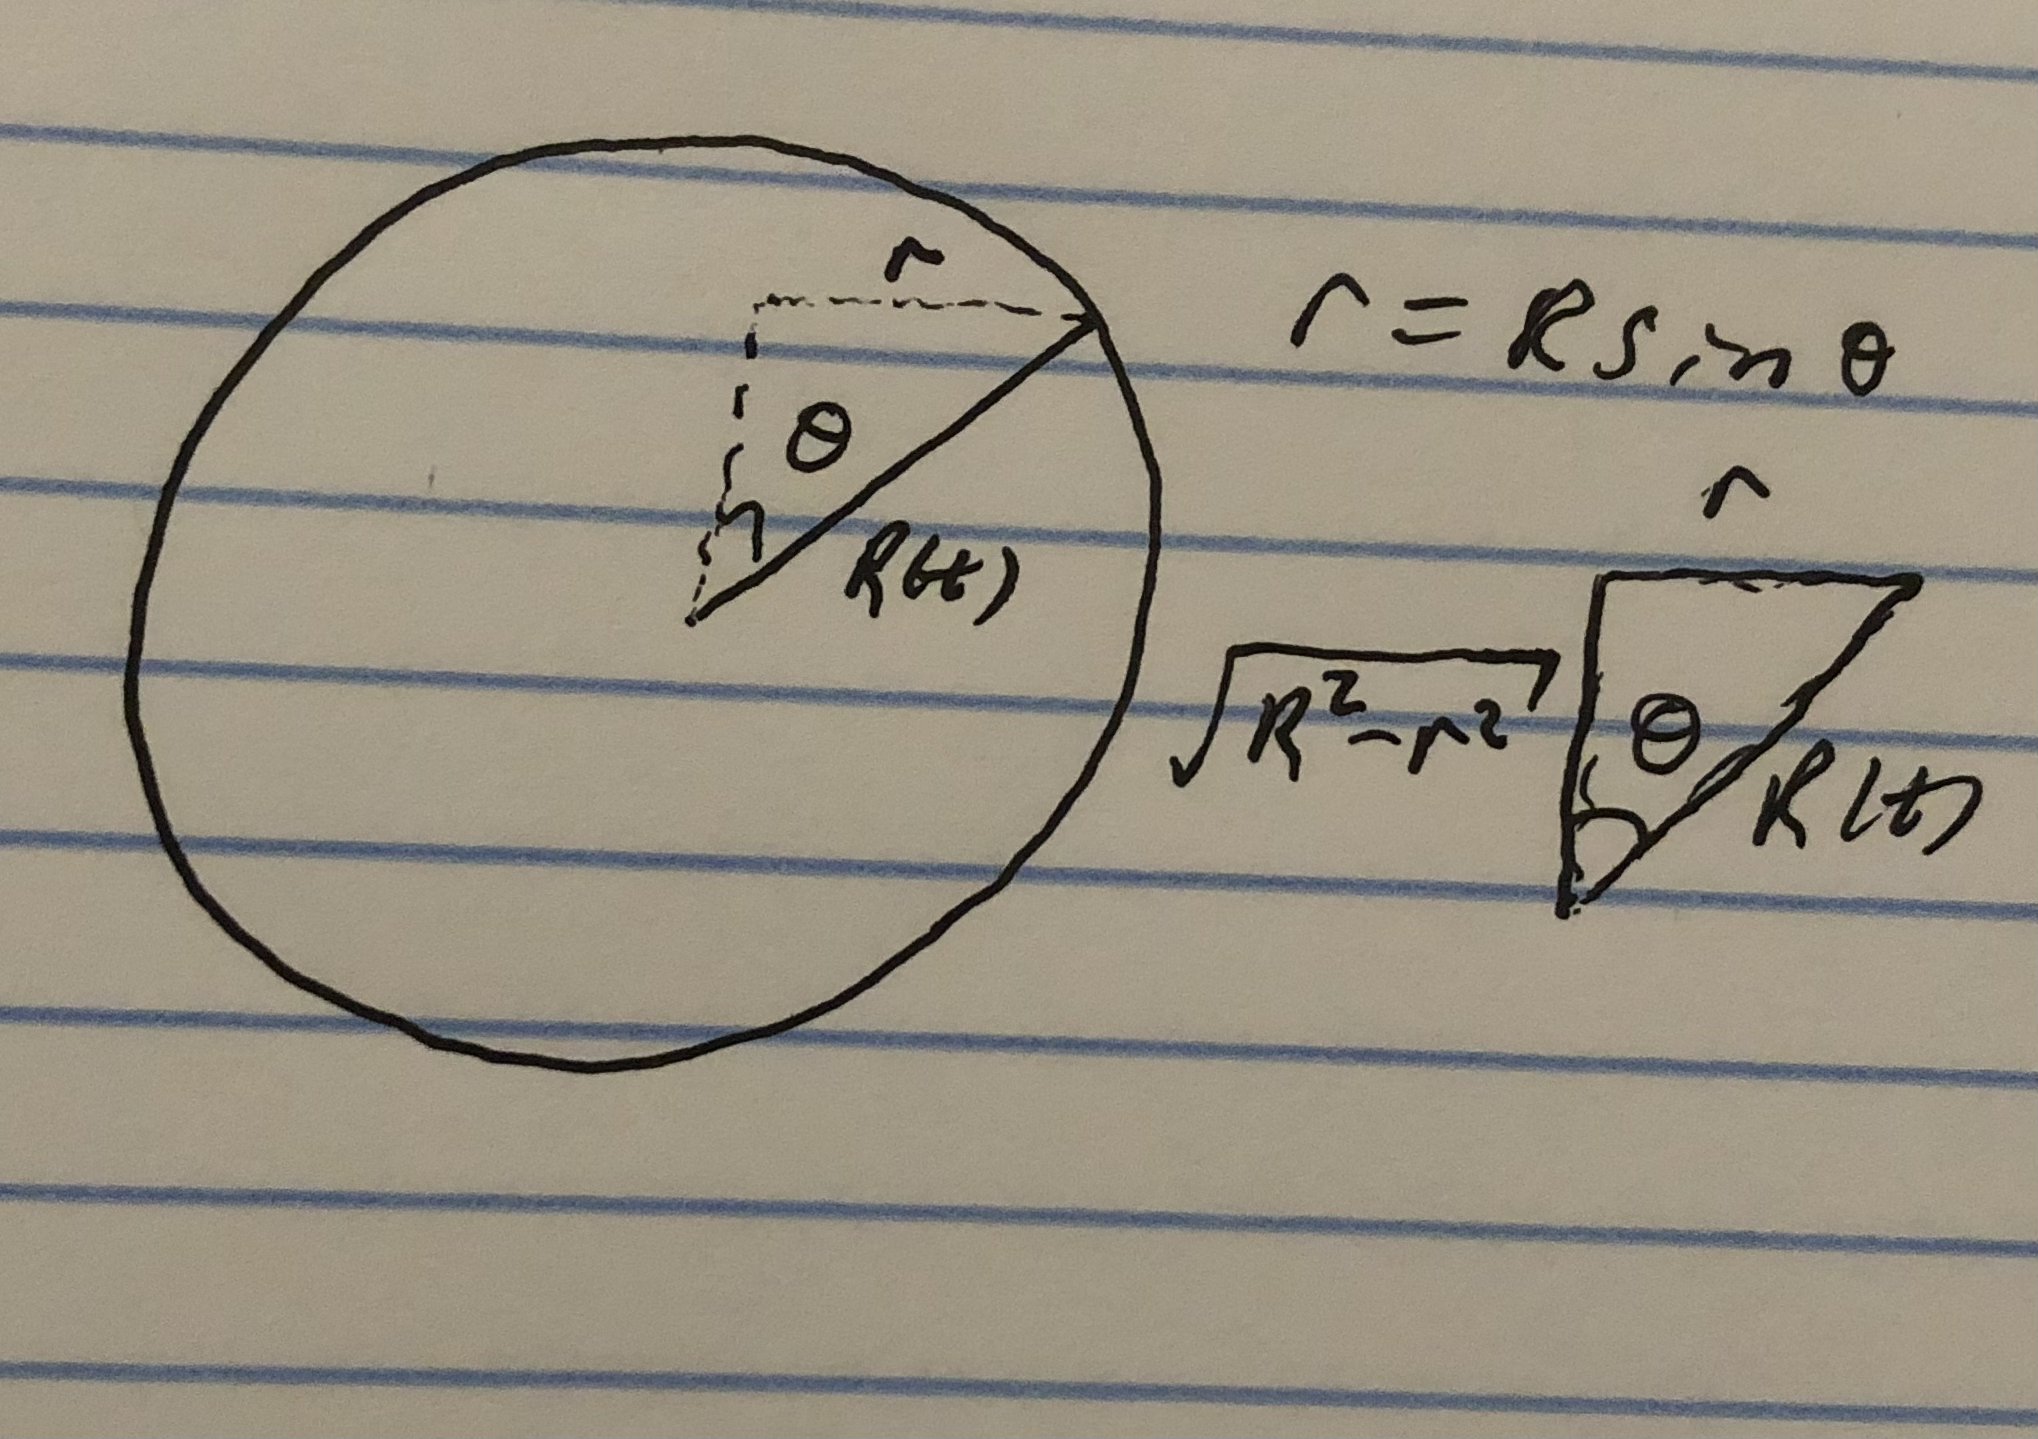 r
θ
R(t)
r = R sin θ
r
√R²-r²
θ
R(t)